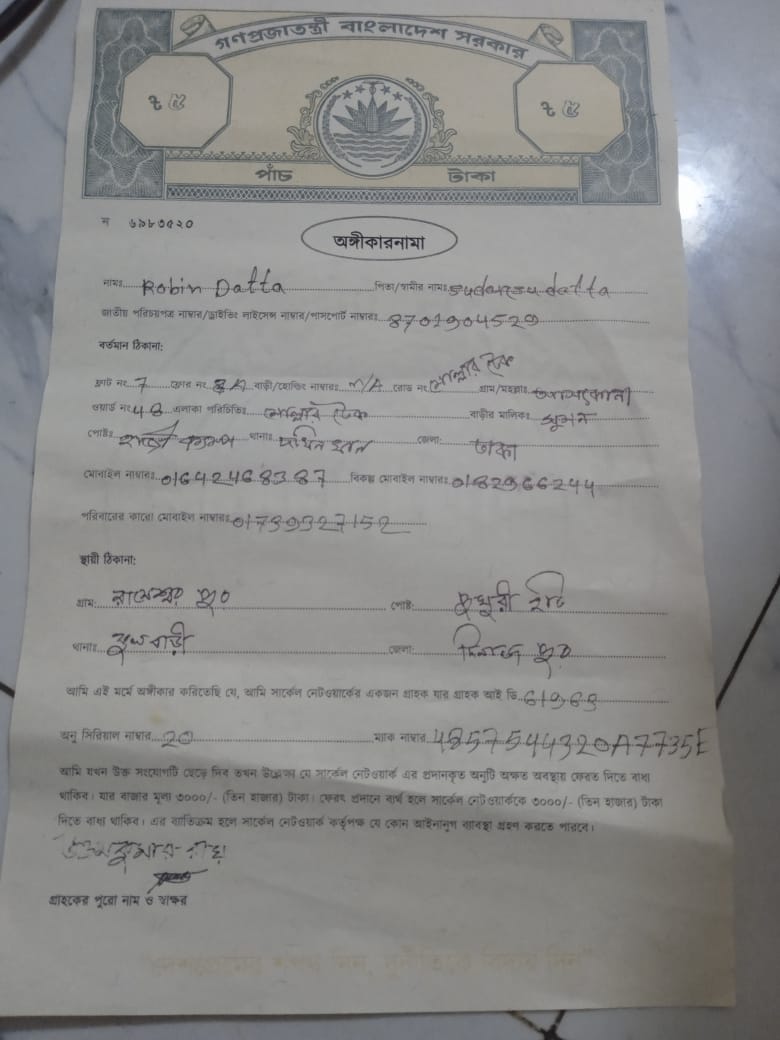 গণপ্রজাতন্ত্রী বাংলাদেশ সরকার
৫ ৫
পাঁচ টাকা
অঙ্গীকারনামা
নামঃ Robin Datta পিতা/স্বামীর নামঃ datta
জাতীয় পরিচয়পত্র নাম্বার/ড্রাইভিং লাইসেন্স নাম্বার/পাসপোর্ট নাম্বারঃ 8701904529
বর্তমান ঠিকানা:
ফ্লাট নং 7 ফ্লোর নং বাড়ী/হোল্ডিং নাম্বারঃ N/A রোড নং মোল্লার টেক গ্রাম/মহল্লাঃ আশকোনা
ওয়ার্ড নং 48 এলাকা পরিচিতিঃ মোল্লার টেক বাড়ীর মালিকঃ সুমন
পোষ্টঃ হাজী ক্যাম্প থানাঃ দক্ষিন খান জেলা: ঢাকা
মোবাইল নাম্বারঃ 01642468387 বিকল্প মোবাইল নাম্বারঃ 0182966244
পরিবারের কারো মোবাইল নাম্বারঃ 01739327152
স্থায়ী ঠিকানা:
গ্রাম: রামেশ্বর পুর পোষ্ট:
থানাঃ ফুলবাড়ী জেলা: দিনাজ পুর
আমি এই মর্মে অঙ্গীকার করিতেছি যে, আমি সার্কেল নেটওয়ার্কের একজন গ্রাহক যার গ্রাহক আই ডি 61963
অনু সিরিয়াল নাম্বার 20 ম্যাক নাম্বার 4857544320A7735E
আমি যখন উক্ত সংযোগটি ছেড়ে দিব তখন উল্লেক্ষ্য যে সার্কেল নেটওয়ার্ক এর প্রদানকৃত অনুটি অক্ষত অবস্থায় ফেরত দিতে বাধ্য
থাকিব। যার বাজার মূল্য ৩০০০/- (তিন হাজার) টাকা। ফেরৎ প্রদানে ব্যর্থ হলে সার্কেল নেটওয়ার্ককে ৩০০০/- (তিন হাজার) টাকা
দিতে বাধ্য থাকিব। এর ব্যতিক্রম হলে সার্কেল নেটওয়ার্ক কর্তৃপক্ষ যে কোন আইনানুগ ব্যাবস্থা গ্রহণ করতে পারবে।
উত্তম কুমার রায়
গ্রাহকের পুরো নাম ও স্বাক্ষর
"দেশপ্রেমের শপথ নিন, দুর্নীতিকে বিদায় দিন"